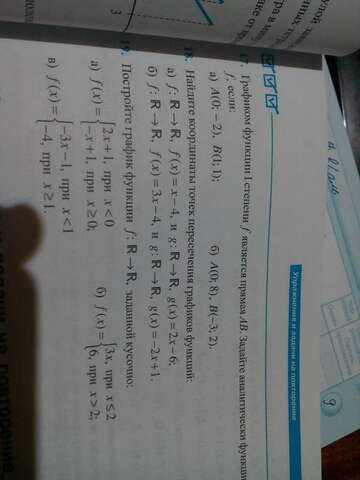 Упражнения и задачи на повторение
17. Графиком функции I степени f является прямая AB. Задайте аналитически функцию
f, если:
а) A(0; −2), B(1; 1); б) A(0; 8), B(−3; 2).
18. Найдите координаты точек пересечения графиков функций:
а) f: R → R, f(x) = x − 4, и g: R → R, g(x) = 2x − 6;
б) f: R → R, f(x) = 3x − 4, и g: R → R, g(x) = −2x + 1.
19. Постройте график функции f: R → R, заданной кусочно:
а) f(x) = {2x + 1, при x < 0
−x + 1, при x ≥ 0;
б) f(x) = {3x, при x ≤ 2
6, при x > 2;
в) f(x) = {−3x − 1, при x < 1
−4, при x ≥ 1.
3
9